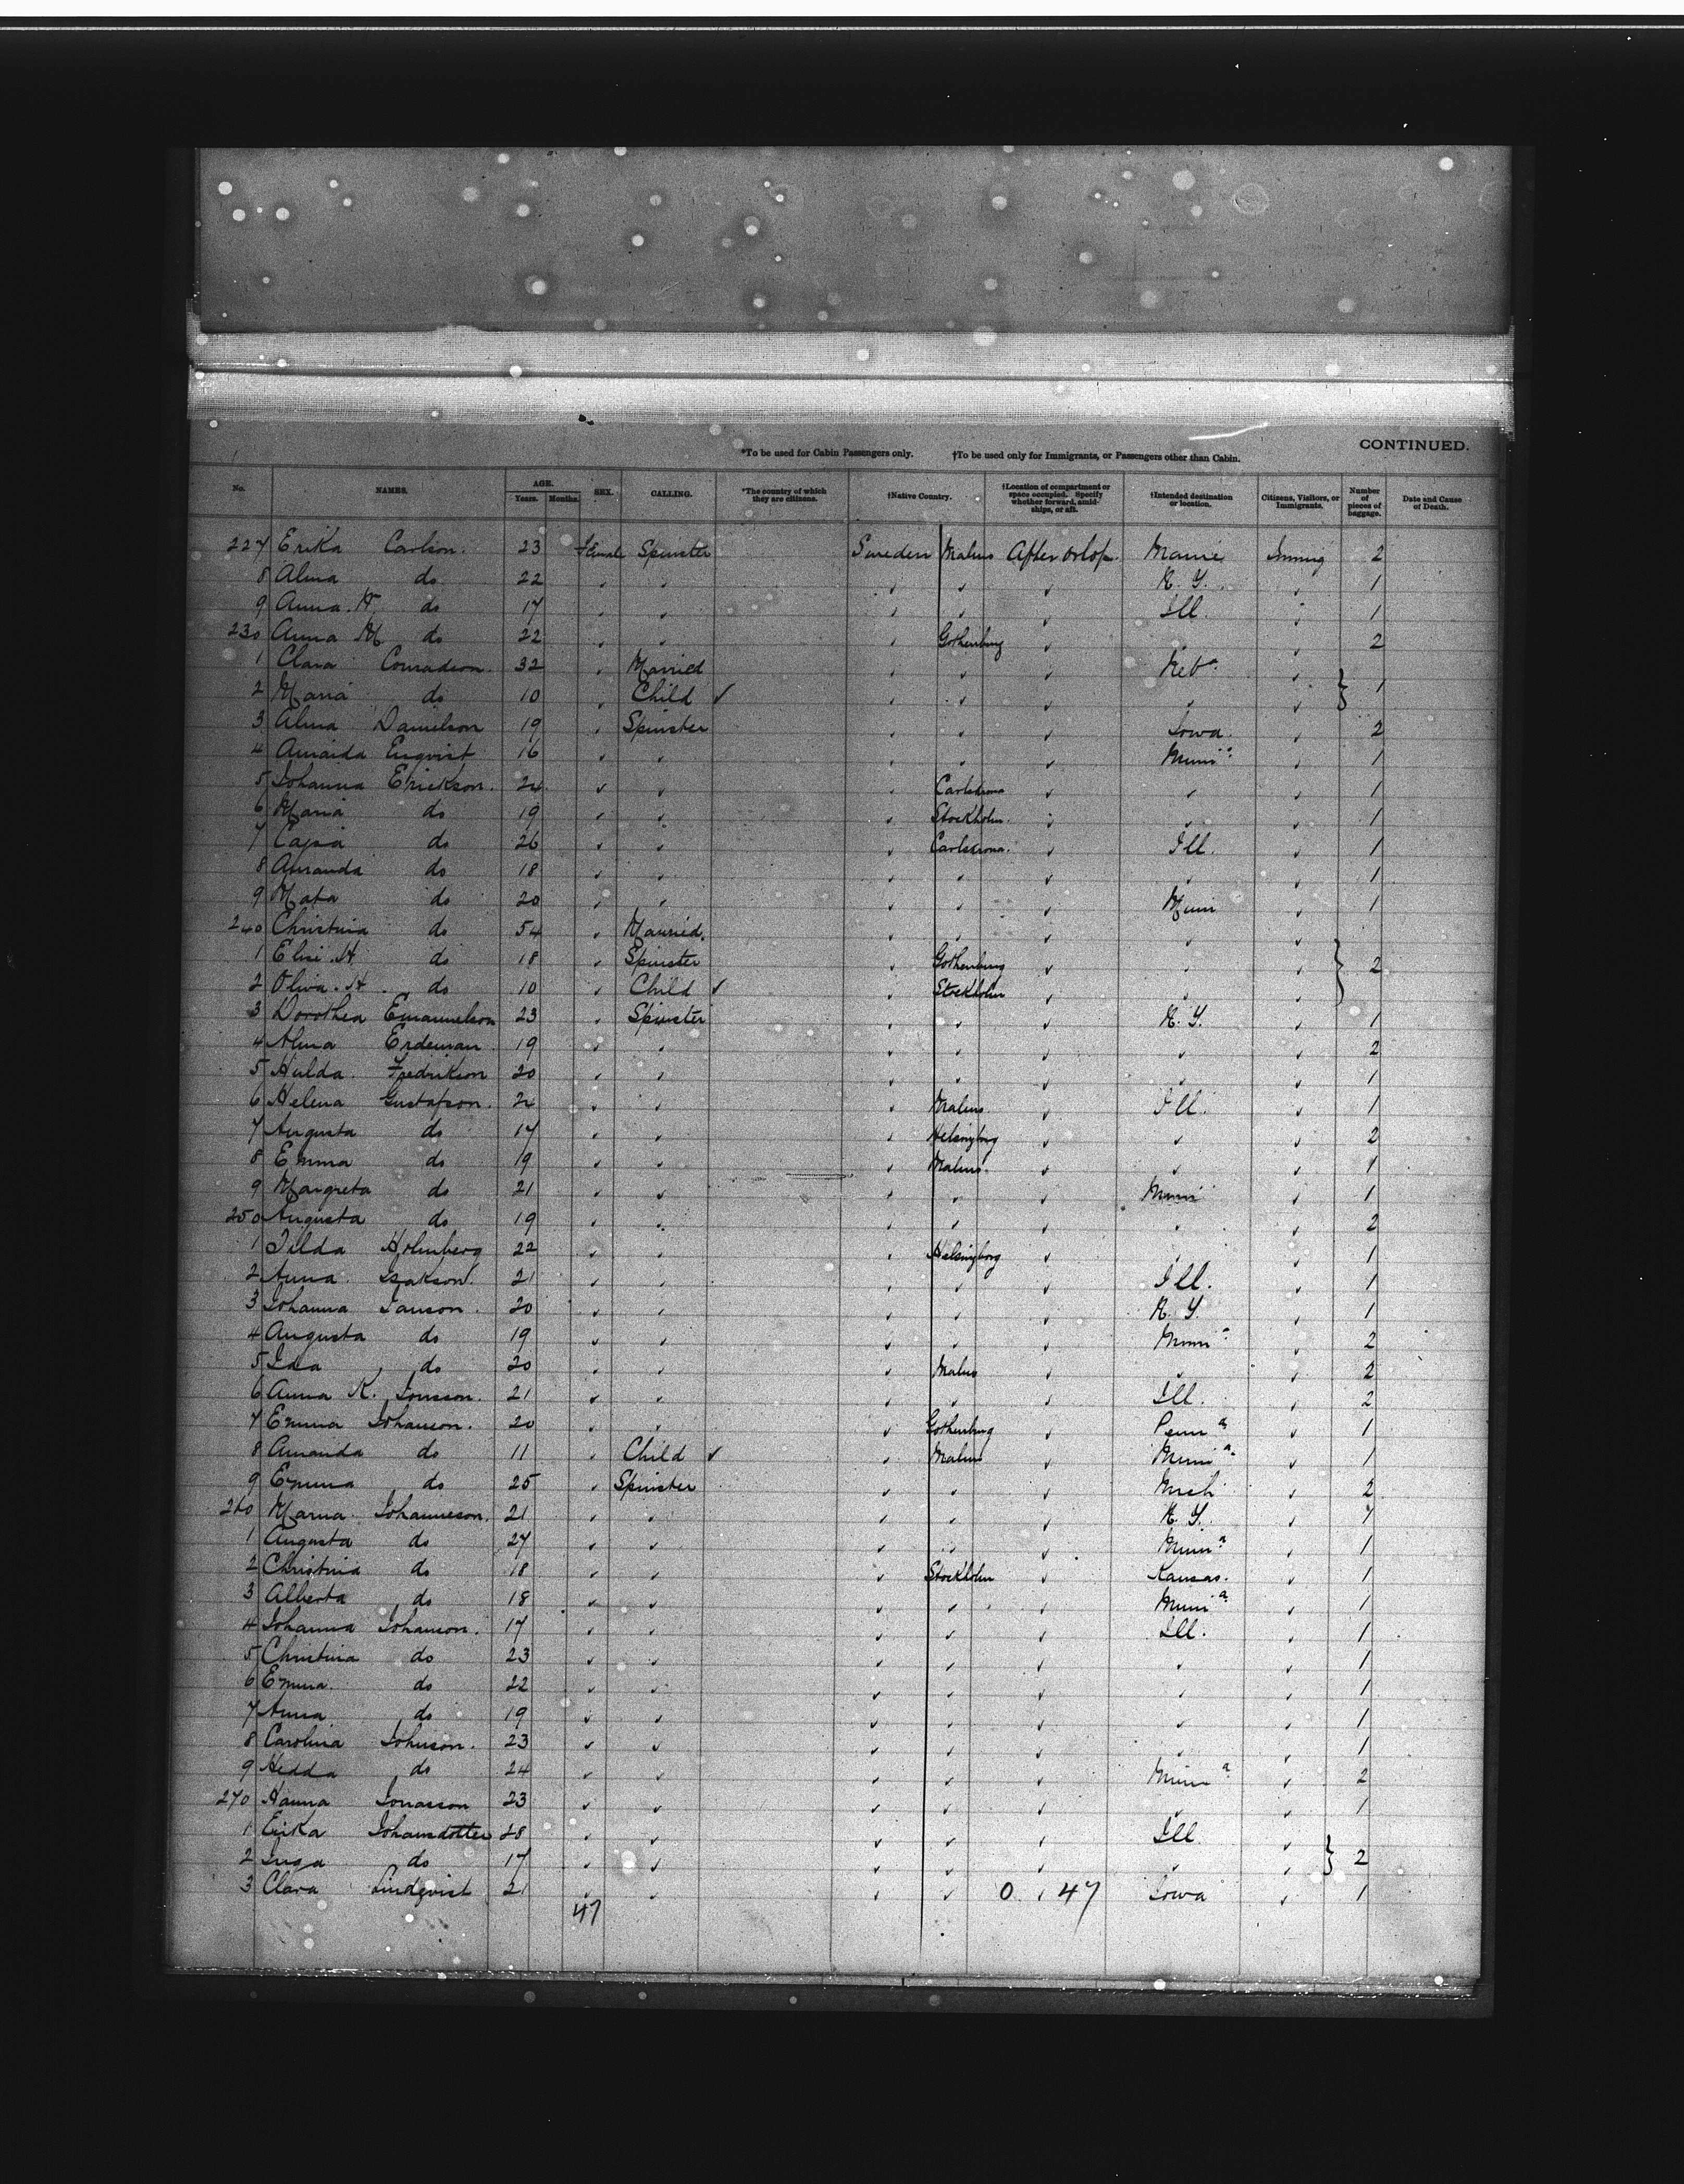 CONTINUED.
*To be used for Cabin Passengers only. †To be used only for Immigrants, or Passengers other than Cabin.
No. NAMES. AGE. Years. Months. SEX. CALLING. *The country of which they are citizens. †Native Country. †Location of compartment or space occupied. Specify whether forward, amidships, or aft. †Intended destination or location. Citizens, Visitors, or Immigrants. Number of pieces of baggage. Date and Cause of Death.
227 Erika Carlson. 23 female Spinster Sweden Malmo After Orlop. Maine Immig 2
8 Alma do 22 " " " " " N. Y. " 1
9 Anna. H. do 17 " " " " " Ill. " 1
230 Anna M do 22 " " " Gothenburg " " " 2
1 Clara Conradson. 32 " Married " " " Neba. " } 1
2 Maria do 10 " Child ✓ " " " " "
3 Alma Danielson 19 " Spinster " " " Iowa. " 2
4 Amaida Enqvist 16 " " " " " Minna " 1
5 Johanna Erickson. 24 " " " Carlskrona " " " 1
6 Maria do 19 " " " Stockholm. " " " 1
7 Cajsa do 26 " " " Carlskrona. " Ill. " 1
8 Amanda do 18 " " " " " " " 1
9 Mata do 20 " " " " " Minn " 1
240 Christina do 54 " Married. " " " " "
1 Elin. H. do 18 " Spinster " Gothenburg " " " } 2
2 Oliva. H. do 10 " Child ✓ " Stockholm " " "
3 Dorothea Emanuelson 23 " Spinster " " " N. Y. " 1
4 Alma Erdeman 19 " " " " " " " 2
5 Hulda. Fredrikson 20 " " " " " " " 1
6 Helena Gustafson. 21 " " " Malmo " Ill. " 1
7 Augusta do 17 " " " Helsingborg " " " 2
8 Emma do 19 " " " Malmo " " " 1
9 Margreta do 21 " " " " " Minn " 1
250 Augusta do 19 " " " " " " " 2
1 Tilda Holmberg 22 " " " Helsingborg " " " 1
2 Anna. Isakson. 21 " " " " " Ill. " 1
3 Johanna Janson. 20 " " " " " N. Y. " 1
4 Augusta do 19 " " " " " Minna " 2
5 Ida do 20 " " " Malmo " " " 2
6 Anna K. Jonsson. 21 " " " " " Ill. " 2
7 Emma Johanson. 20 " " " Gothenburg " Penna " 1
8 Amanda do 11 " Child ✓ " Malmo " Minna " 1
9 Emma do 25 " Spinster " " " Mich " 2
260 Maria. Johanneson. 21 " " " " " N. Y. " 7
1 Augusta do 27 " " " " " Minna " 1
2 Christina do 18 " " " Stockholm " Kansas. " 1
3 Alberta do 18 " " " " " Minna " 1
4 Johanna Johanson. 17 " " " " " Ill. " 1
5 Christina do 23 " " " " " " " 1
6 Emma. do 22 " " " " " " " 1
7 Anna do 19 " " " " " " " 1
8 Carolina Johnson. 23 " " " " " " " 1
9 Hedda do 24 " " " " " Minna " 2
270 Hanna Jonasson 23 " " " " " " " 1
1 Erika Johansdotter 28 " " " " " Ill " } 2
2 Inga do 17 " " " " " " "
3 Clara Lindqvist 21 " " " " 0 " 47 Iowa " 1
47